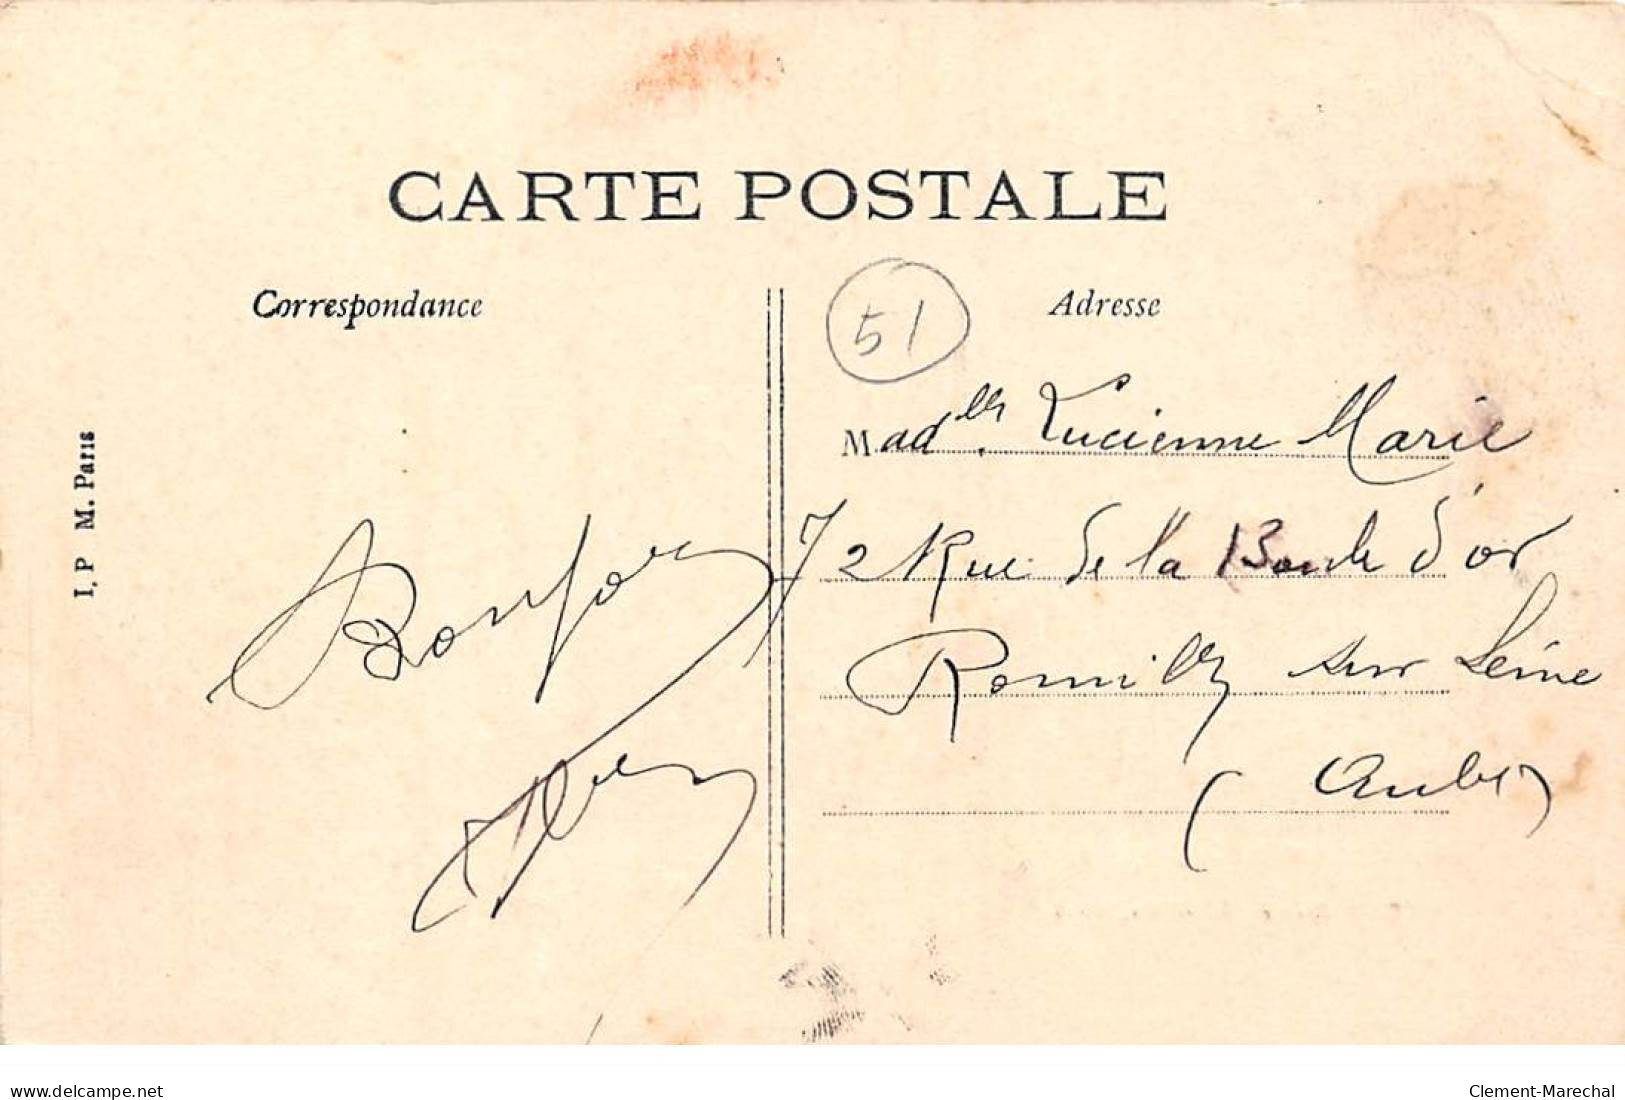 CARTE POSTALE
Correspondance
Adresse
51
I. P M. Paris
Madlle. Lucienne Marie
72 Rue de la Boule d'or
Romilly sur Seine
(Aube)
Bonjour
delcampe.net
Clement-Marechal